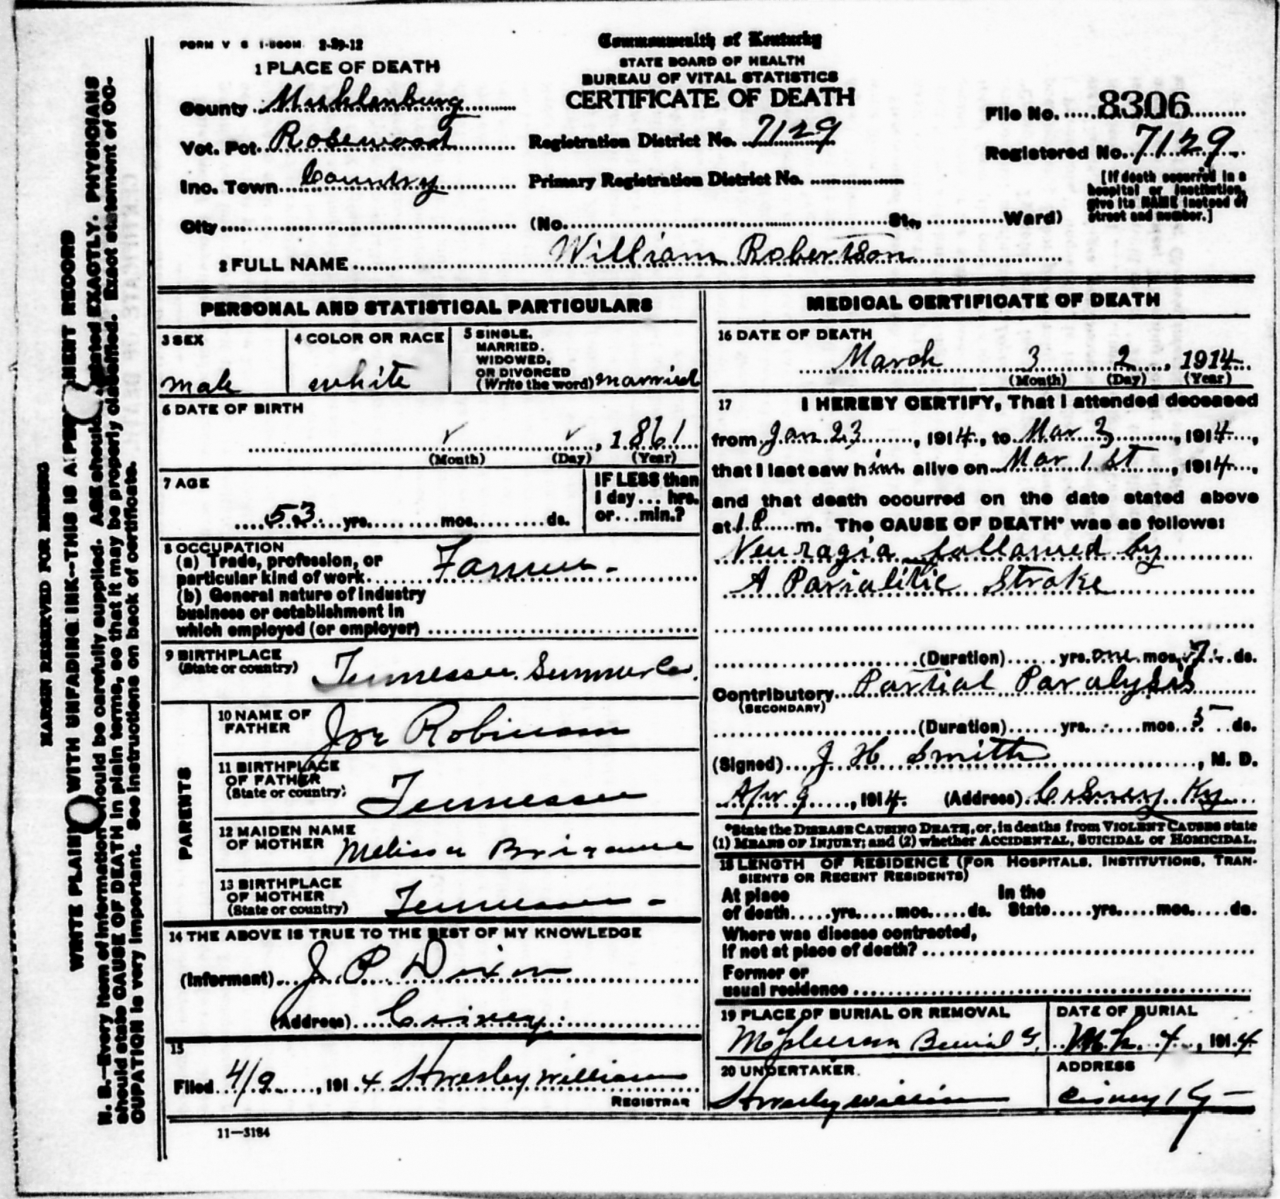 FORM V S 1-500M 2-29-12
Commonwealth of Kentucky
STATE BOARD OF HEALTH
BUREAU OF VITAL STATISTICS
CERTIFICATE OF DEATH
1 PLACE OF DEATH
County Muhlenburg
Vot. Pct Rosewood
Inc. Town Country
City (No. St., Ward)
Registration District No. 7129
Primary Registration District No.
File No. 8306
Registered No. 7129
[If death occurred in a hospital or institution, give its NAME instead of street and number.]
2 FULL NAME William Robertson
PERSONAL AND STATISTICAL PARTICULARS
3 SEX
male
4 COLOR OR RACE
white
5 SINGLE, MARRIED, WIDOWED, OR DIVORCED
(Write the word) married
6 DATE OF BIRTH
, 1861
(Month) (Day) (Year)
7 AGE
53 yrs. mos. ds.
IF LESS than 1 day... hrs. or...min.?
8 OCCUPATION
(a) Trade, profession, or
particular kind of work Farmer
(b) General nature of industry
business or establishment in
which employed (or employer)
9 BIRTHPLACE
(State or country) Tennessee Sumner Co.
PARENTS
10 NAME OF FATHER Joe Robinson
11 BIRTHPLACE OF FATHER
(State or country) Tennessee
12 MAIDEN NAME OF MOTHER Melissa
13 BIRTHPLACE OF MOTHER
(State or country) Tennessee
14 THE ABOVE IS TRUE TO THE BEST OF MY KNOWLEDGE
(Informant) J. P. Dixon
(Address) Cisney
15
Filed 4/9, 1914 Wesley Williams
REGISTRAR
11-3184
MEDICAL CERTIFICATE OF DEATH
16 DATE OF DEATH
March 3 2, 1914
(Month) (Day) (Year)
17 I HEREBY CERTIFY, That I attended deceased
from Jan 23, 1914, to Mar 2, 1914,
that I last saw him alive on Mar 1st, 1914,
and that death occurred on the date stated above
at 1 P. m. The CAUSE OF DEATH* was as follows:
Neuragia followed by
A Paralitic Stroke
(Duration) yrs. one mos. 7 ds.
Contributory Partial Paralysis
(SECONDARY)
(Duration) yrs. mos. 5 ds.
(Signed) J H Smith, M. D.
Apr 9, 1914 (Address) Cisney Ky
*State the DISEASE CAUSING DEATH, or, in deaths from VIOLENT CAUSES state
(1) MEANS OF INJURY; and (2) whether ACCIDENTAL, SUICIDAL or HOMICIDAL.
18 LENGTH OF RESIDENCE (FOR HOSPITALS, INSTITUTIONS, TRAN-
SIENTS OR RECENT RESIDENTS)
At place of death yrs. mos. ds. In the State yrs. mos. ds.
Where was disease contracted,
if not at place of death?
Former or
usual residence
19 PLACE OF BURIAL OR REMOVAL
McPherson Burial G.
DATE OF BURIAL
Mch. 4, 1914
20 UNDERTAKER
Wesley Williams
ADDRESS
Cisney Ky
MARGIN RESERVED FOR BINDING
WRITE PLAINLY WITH UNFADING INK--THIS IS A PERMANENT RECORD
N. B.--Every item of information should be carefully supplied. AGE should be stated EXACTLY. PHYSICIANS
should state CAUSE OF DEATH in plain terms, so that it may be properly classified. Exact statement of OC-
CUPATION is very important. See instructions on back of certificate.